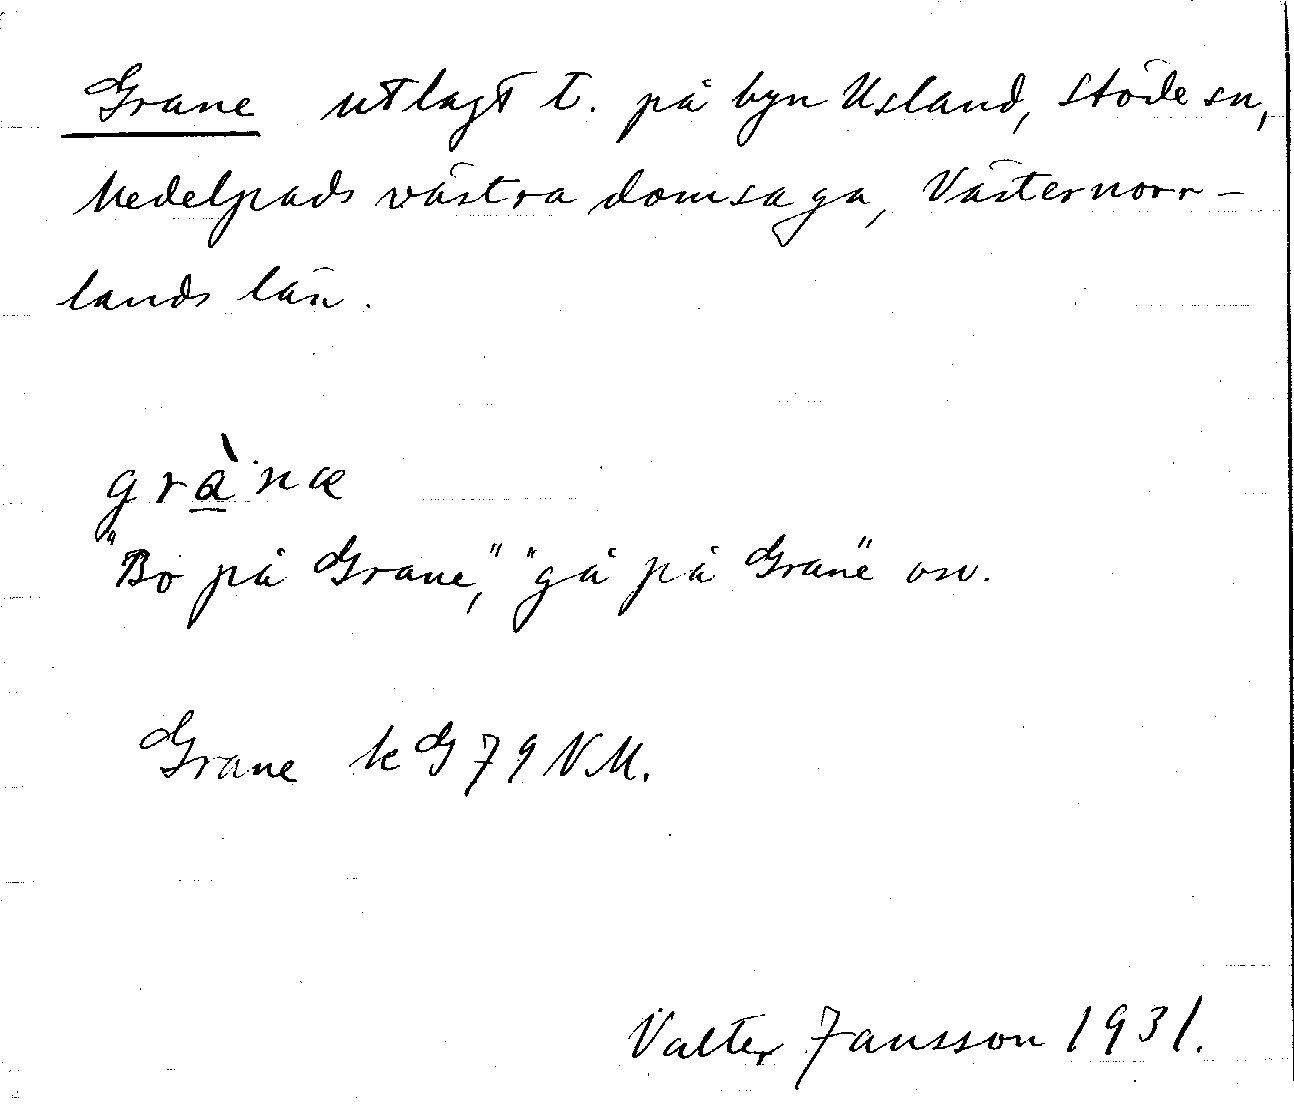 Grane utlagt t. på byn Usland, Stöde sn,
Medelpads västra domsaga, Västernorr-
lands län.
gràꞏnæ
"Bo på Grane," "gå på Grane" osv.
Grane k G 79 N.M.
Valter Jansson 1931.